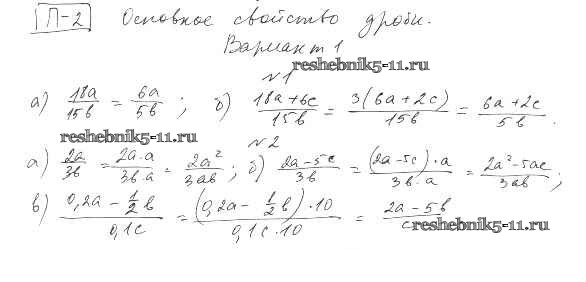 П-2 Основное свойство дроби.
Вариант 1
№1
reshebnik5-11.ru
а) 18a/15b = 6a/5b ; б) 18a+6c/15b = 3(6a+2c)/15b = 6a+2c/5b .
reshebnik5-11.ru
№2
а) 2a/3b = 2a·a/3b·a = 2a²/3ab ; б) 2a-5c/3b = (2a-5c)·a/3b·a = 2a²-5ac/3ab ;
в) 0,2a - 1/2 b/0,1c = (0,2a - 1/2 b)·10/0,1c·10 = 2a-5b/c
reshebnik5-11.ru